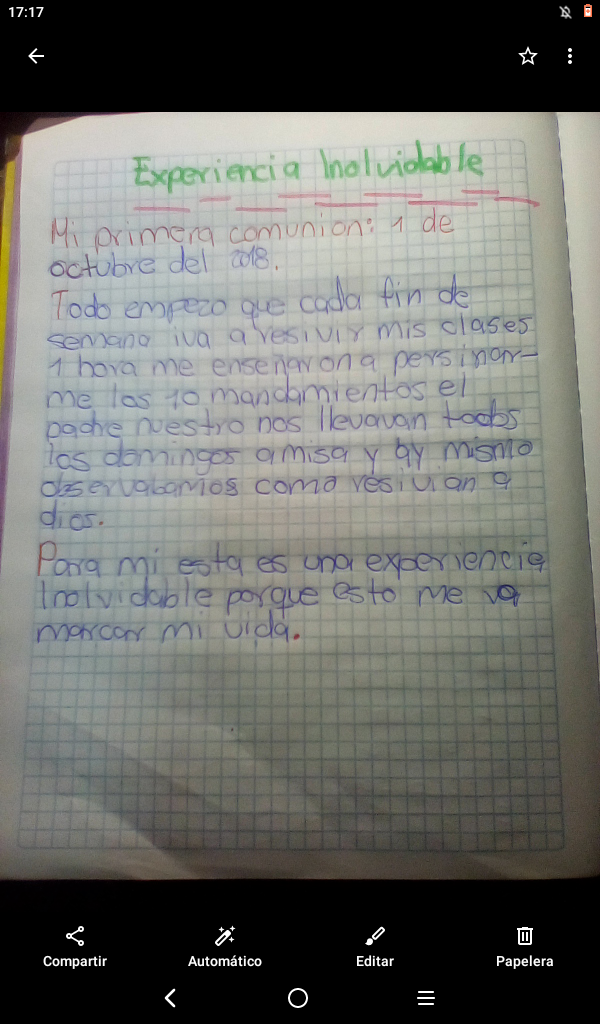 17:17
Experiencia Inolvidable
Mi primera comunion: 1 de
octubre del 2018.
Todo empezo que cada fin de
semana iva a resivir mis clases
1 hora me enseñaron a persinar-
me los 10 mandamientos el
padre nuestro nos llevavan todos
los domingos a misa y ay mismo
observabamos como resivian a
dios.
Para mi esta es una experiencia
Inolvidable porque esto me va
marcar mi vida.
Compartir
Automático
Editar
Papelera